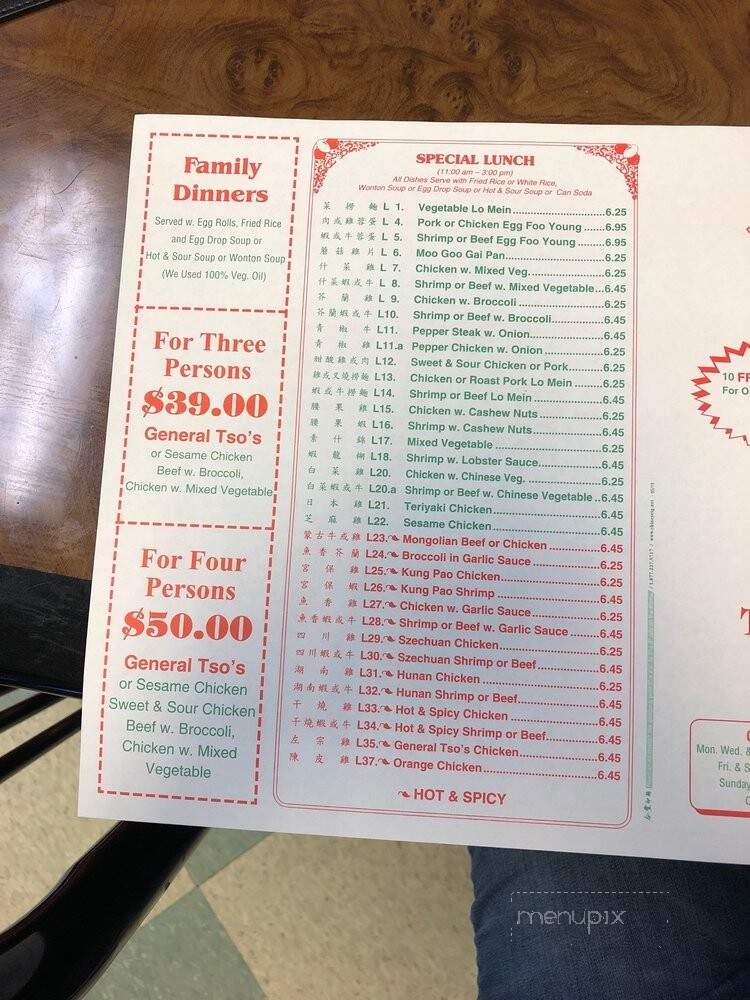 Family
Dinners
Served w. Egg Rolls, Fried Rice
and Egg Drop Soup or
Hot & Sour Soup or Wonton Soup
(We Used 100% Veg. Oil)
For Three
Persons
$39.00
General Tso's
or Sesame Chicken
Beef w. Broccoli,
Chicken w. Mixed Vegetable
For Four
Persons
$50.00
General Tso's
or Sesame Chicken
Sweet & Sour Chicken
Beef w. Broccoli,
Chicken w. Mixed
Vegetable
SPECIAL LUNCH
(11:00 am – 3:00 pm)
All Dishes Serve with Fried Rice or White Rice,
Wonton Soup or Egg Drop Soup or Hot & Sour Soup or Can Soda
菜撈麵 L 1. Vegetable Lo Mein 6.25
肉或雞蓉蛋 L 4. Pork or Chicken Egg Foo Young 6.95
蝦或牛蓉蛋 L 5. Shrimp or Beef Egg Foo Young 6.95
蘑菇雞片 L 6. Moo Goo Gai Pan 6.25
什菜雞 L 7. Chicken w. Mixed Veg. 6.25
什菜蝦或牛 L 8. Shrimp or Beef w. Mixed Vegetable 6.45
芥蘭雞 L 9. Chicken w. Broccoli 6.25
芥蘭蝦或牛 L10. Shrimp or Beef w. Broccoli 6.45
青椒牛 L11. Pepper Steak w. Onion 6.45
青椒雞 L11.a Pepper Chicken w. Onion 6.25
甜酸雞或肉 L12. Sweet & Sour Chicken or Pork 6.25
雞或叉燒撈麵 L13. Chicken or Roast Pork Lo Mein 6.25
蝦或牛撈麵 L14. Shrimp or Beef Lo Mein 6.45
腰果雞 L15. Chicken w. Cashew Nuts 6.25
腰果蝦 L16. Shrimp w. Cashew Nuts 6.45
素什錦 L17. Mixed Vegetable 6.25
蝦龍糊 L18. Shrimp w. Lobster Sauce 6.45
白菜雞 L20. Chicken w. Chinese Veg. 6.25
白菜蝦或牛 L20.a Shrimp or Beef w. Chinese Vegetable 6.45
日本雞 L21. Teriyaki Chicken 6.25
芝麻雞 L22. Sesame Chicken 6.45
蒙古牛或雞 L23. Mongolian Beef or Chicken 6.45
魚香芥蘭 L24. Broccoli in Garlic Sauce 6.25
宮保雞 L25. Kung Pao Chicken 6.25
宮保蝦 L26. Kung Pao Shrimp 6.45
魚香雞 L27. Chicken w. Garlic Sauce 6.25
魚香蝦或牛 L28. Shrimp or Beef w. Garlic Sauce 6.45
四川雞 L29. Szechuan Chicken 6.25
四川蝦或牛 L30. Szechuan Shrimp or Beef 6.45
湖南雞 L31. Hunan Chicken 6.25
湖南蝦或牛 L32. Hunan Shrimp or Beef 6.45
干燒雞 L33. Hot & Spicy Chicken 6.45
干燒蝦或牛 L34. Hot & Spicy Shrimp or Beef 6.45
左宗雞 L35. General Tso's Chicken 6.45
陳皮雞 L37. Orange Chicken 6.45
HOT & SPICY
10 FR
For O
T
Mon. Wed. &
Fri. & S
Sunday
menupix